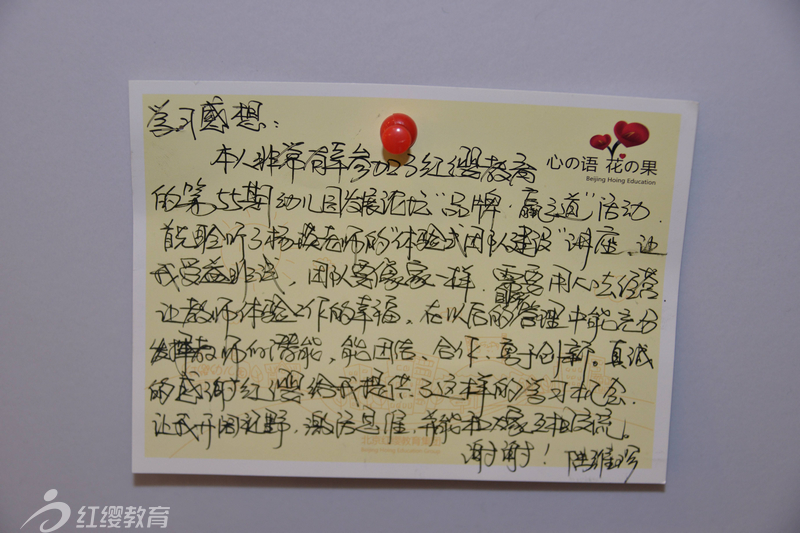 学习感想：
本人非常有幸参加了红缨教育
心の语 花の果
Beijing Hoing Education
的第55期幼儿园发展论坛"品牌·赢之道"活动.
首先聆听了杨瑛老师的"体验式团队建设"讲座、让
我受益非浅，团队要像家一样，需要用心去经营
让教师体验工作的幸福，在以后的管理中能充分
发挥教师的潜能，能团结、合作、勇于创新。真诚
的感谢红缨给我提供了这样的学习机会.
让我开阔视野，激活思维，并能和大家互相交流。
谢谢！
红缨教育